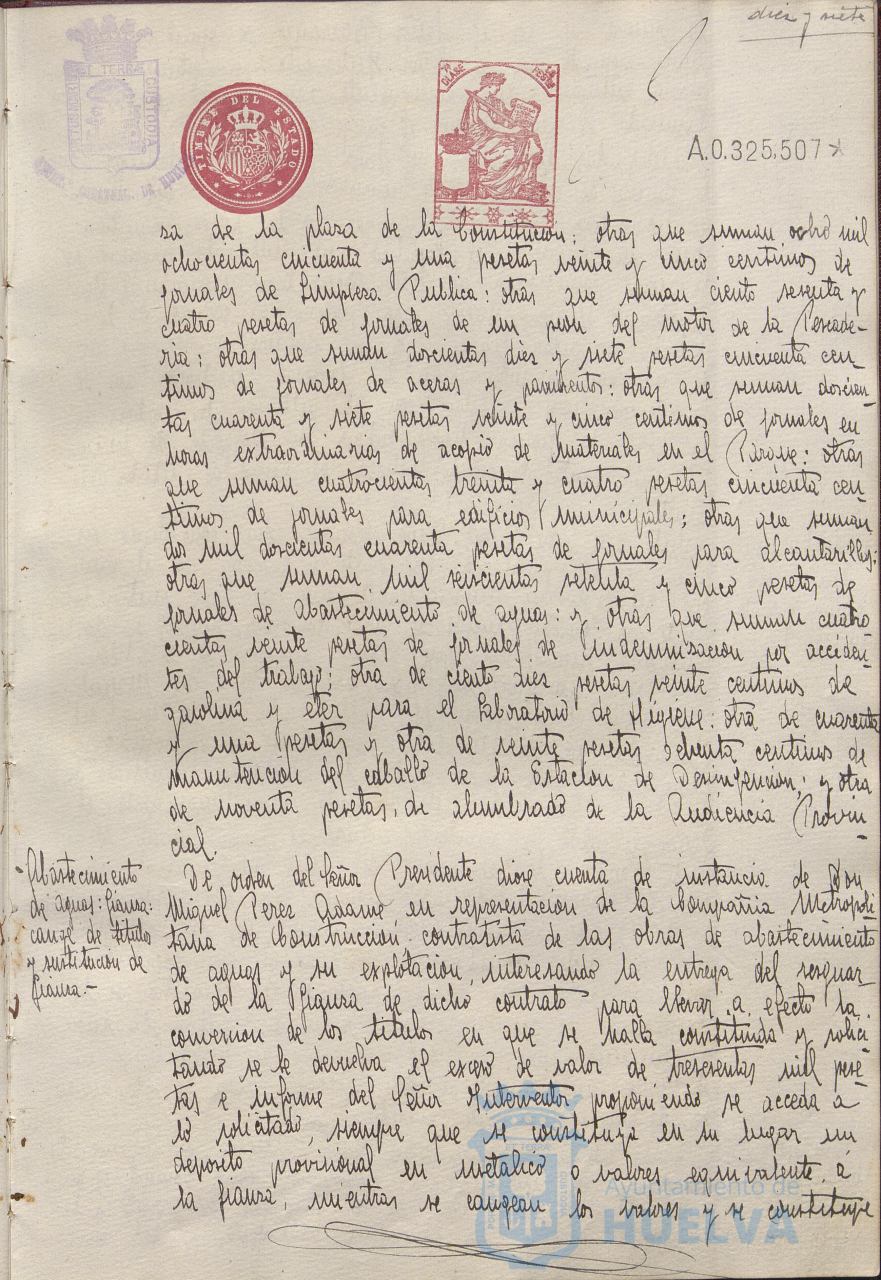 diez y siete
TIMBRE DEL ESTADO
CLASE
A.0.325,507*
sa de la plaza de la Constitución: otras que suman ocho mil
ochocientas cincuenta y una pesetas veinte y cinco centimos de
jornales de Limpieza Publica: otras que suman ciento sesenta y
cuatro pesetas de jornales de un peón del motor de la Pescade-
ria: otras que suman doscientas diez y siete pesetas cincuenta cen-
timos de jornales de aceras y pavimentos: otras que suman doscien-
tas cuarenta y siete pesetas veinte y cinco centimos de jornales en
horas extraordinarias de acopio de materiales en el Parque: otras
que suman cuatrocientas treinta y cuatro pesetas cincuenta cen-
timos de jornales para edificios municipales; otras que suman
dos mil doscientas cuarenta pesetas de jornales para alcantarillas:
otras que suman mil seiscientas setenta y cinco pesetas de
jornales de abastecimiento de aguas: y otras que suman cuatro
cientas veinte pesetas de jornales de indemnización por acciden-
tes del trabajo; otra de ciento diez pesetas veinte centimos de
gasolina y eter para el Laboratorio de Higiene: otra de cuarenta
y una pesetas y otra de veinte pesetas ochenta centimos de
manutención del caballo de la Estación de Desinfección; y otra
de noventa pesetas, de alumbrado de la Audiencia Provin-
cial.
Abastecimiento
de aguas: fianza:
cange de titulos
y sustitución de
fianza.-
De orden del Señor Presidente diose cuenta de instancia de Don
Miguel Perez Adame, en representación de la Compañia Metropoli
tana de Construcción contratista de las obras de abastecimiento
de aguas y su explotación, interesando la entrega del resguar-
do de la fianza de dicho contrato para llevar a efecto la
conversion de los titulos en que se halla constituida y solici-
tando se le devuelva el exceso de valor de trescientas mil pese-
tas e informe del Señor Interventor proponiendo se acceda á
lo solicitado, siempre que se constituya en su lugar un
deposito provisional en metalico o valores equivalente á
la fianza, mientras se cangean los valores y se constituye
Ayuntamiento de
HUELVA